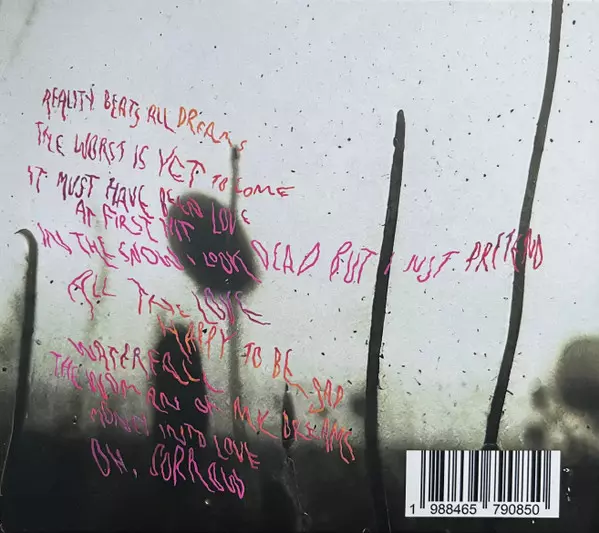 REALITY BEATS ALL DREAMS
THE WORST IS YET TO COME
IT MUST HAVE BEEN LOVE
AT FIRST HIT
IN THE SNOW I LOOK DEAD BUT I JUST PRETEND
ALL THE LOVE
HAPPY TO BE SAD
WATERFALL
THE WOMAN OF MY DREAMS
MONEY INTO LOVE
OH, SORROW
1 988465 790850